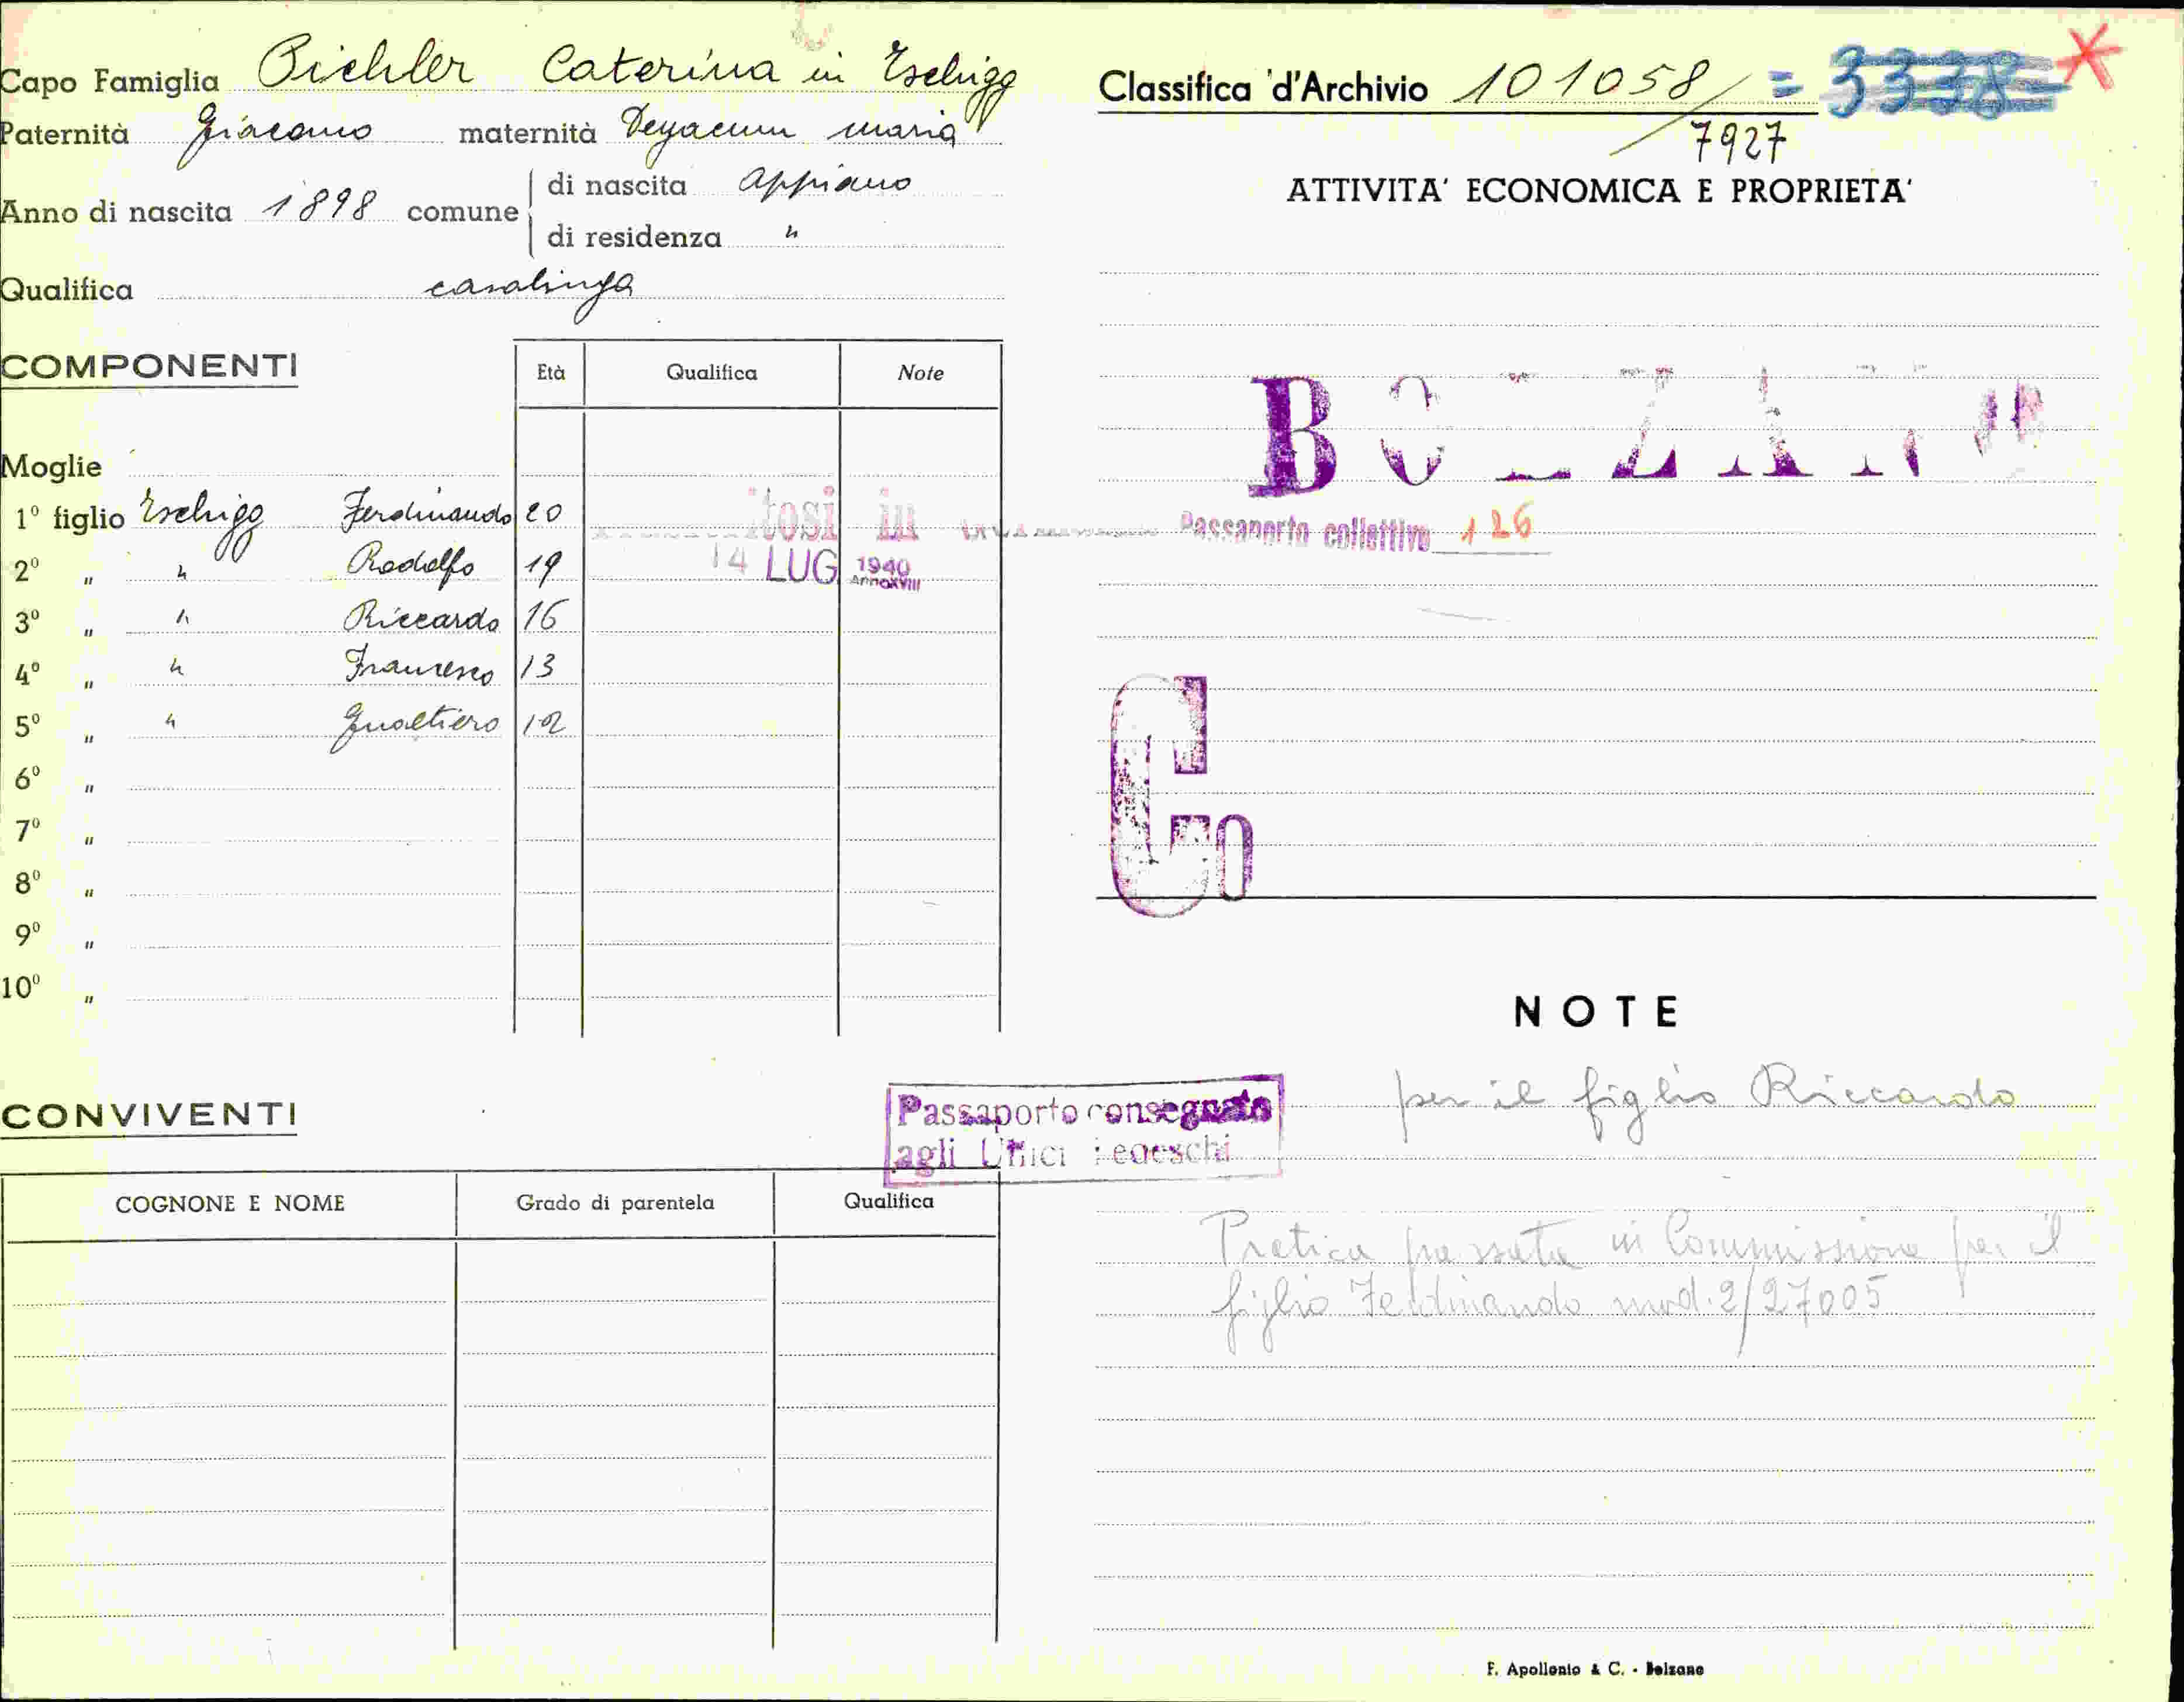 Capo Famiglia Pichler Caterina in Tschigg
Paternità Giacomo maternità Degacum Maria
Anno di nascita 1898 comune di nascita Appiano
di residenza "
Qualifica casalinga
COMPONENTI
Età Qualifica Note
Moglie
1º figlio Tschigg Ferdinando 20
2º " " Rodolfo 19
14 LUG 1940 Anno XVIII
3º " " Riccardo 16
4º " " Francesco 13
5º " " Gualtiero 12
6º "
7º "
8º "
9º "
10º "
CONVIVENTI
COGNONE E NOME Grado di parentela Qualifica
Classifica d'Archivio 101058/ = 3338
7927
ATTIVITA' ECONOMICA E PROPRIETA'
BOLZANO
Passaporto collettivo 126
Co
NOTE
Passaporto consegnato
agli Uffici Tedeschi
per il figlio Riccardo
Pratica passata in Commissione per il
figlio Ferdinando mod. 2/27005
F. Apollonio & C. - Bolzano